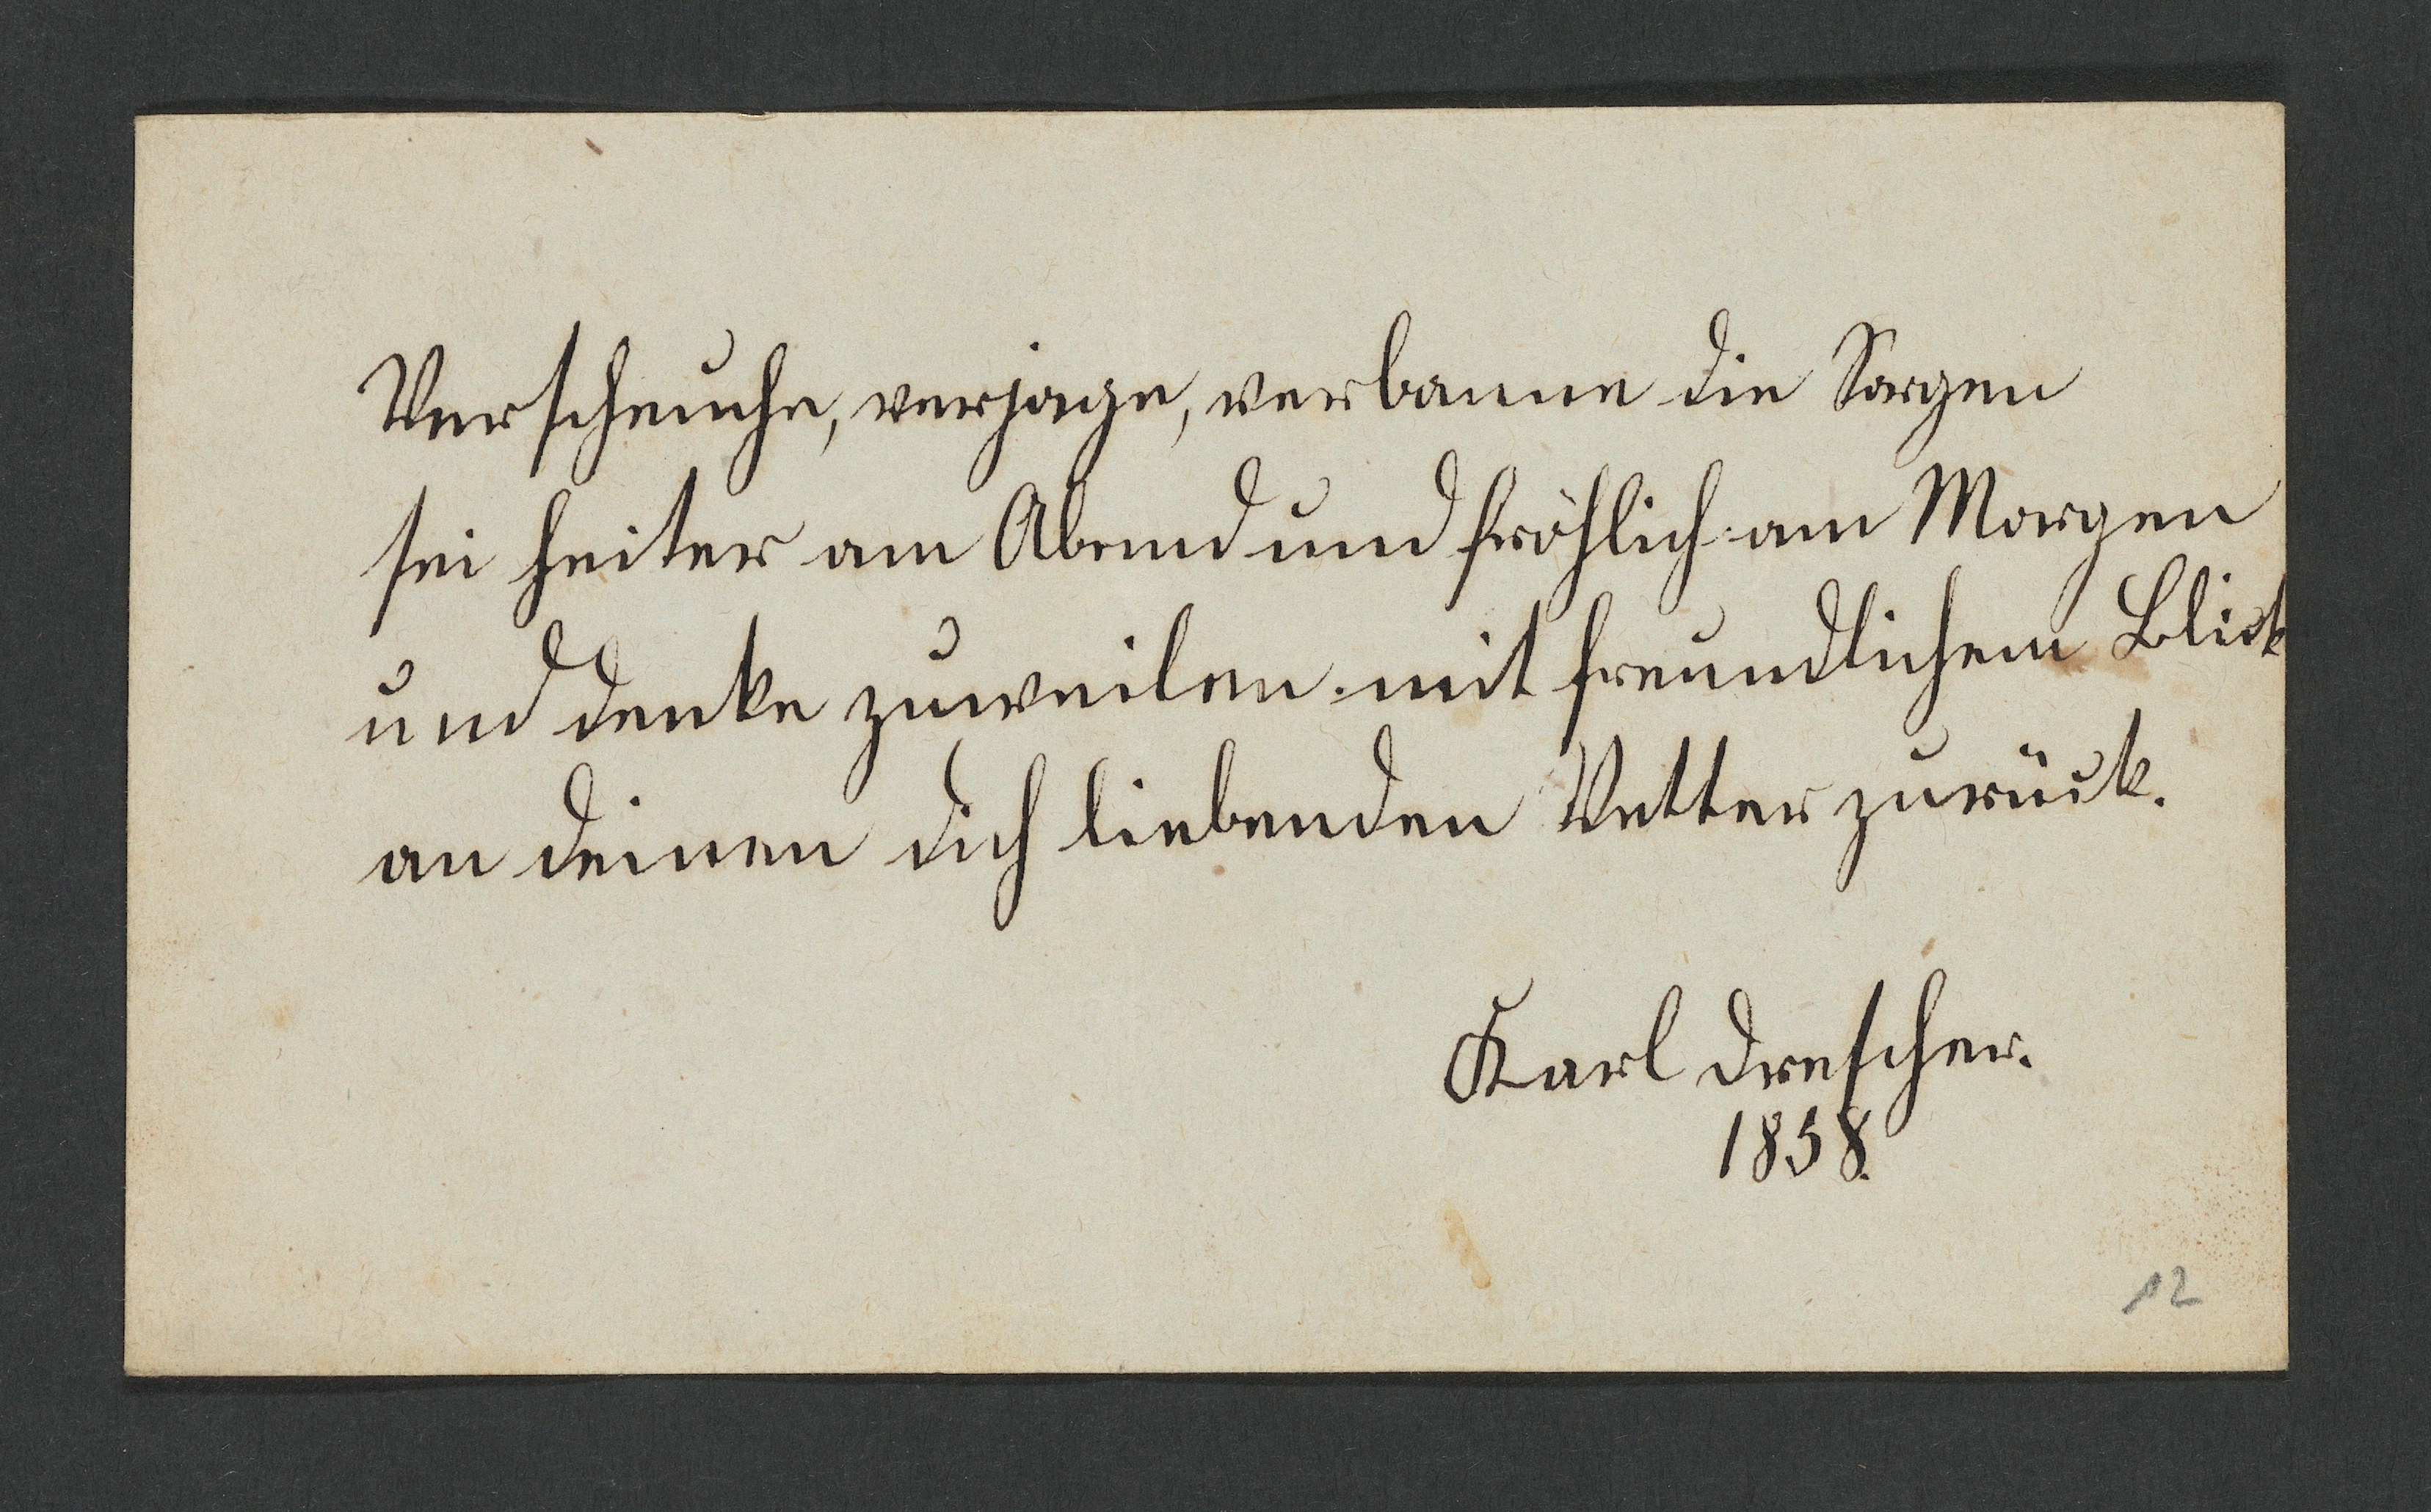 Verscheuche, verjage, verbanne die Sorgen
sei heiter am Abend und fröhlich am Morgen
und denke zuweilen mit freundlichem Blick
an deinen dich liebenden Vetter zurück.
Karl Drescher.
1858.
12